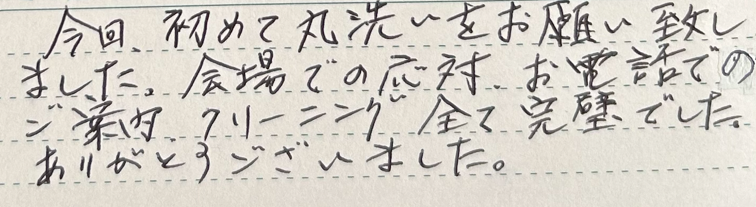 今回、初めて丸洗いをお願い致し
ました。会場での応対、お電話での
ご案内、クリーニング全て完璧でした。
ありがとうございました。